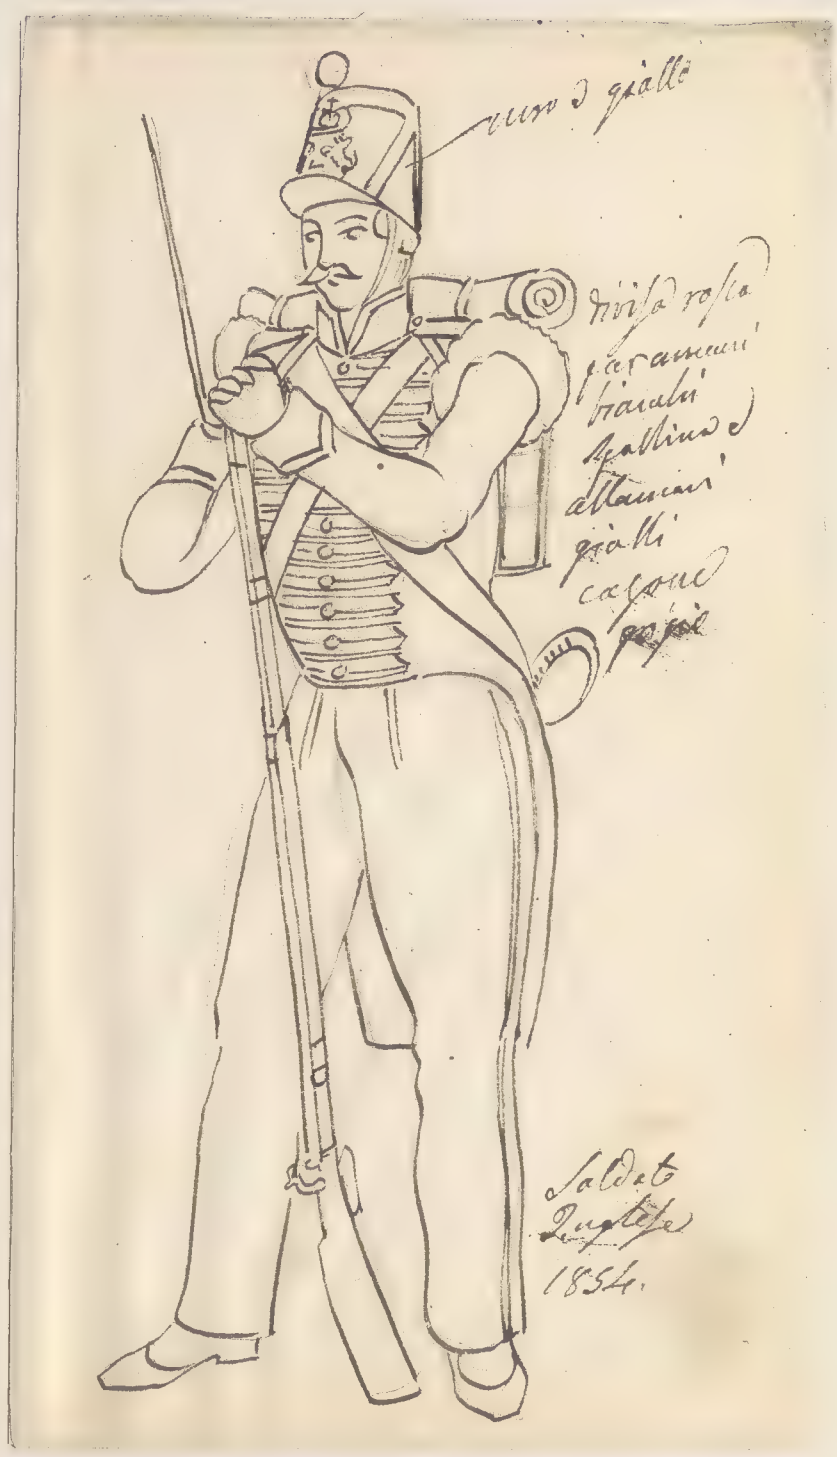 nero e giallo
divisa rossa
paramani
bianchi
spallina e
allamari
gialli
calzone
Soldato
Inglese
1854.